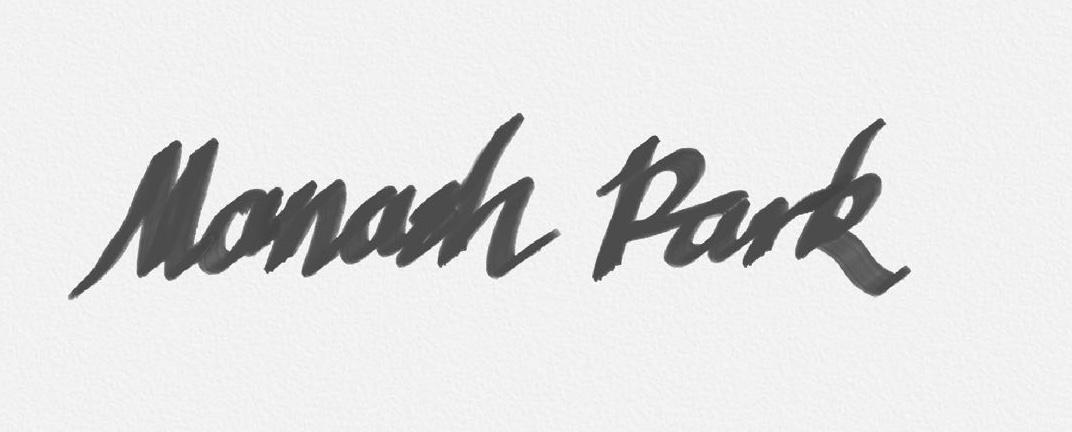 Monash Park